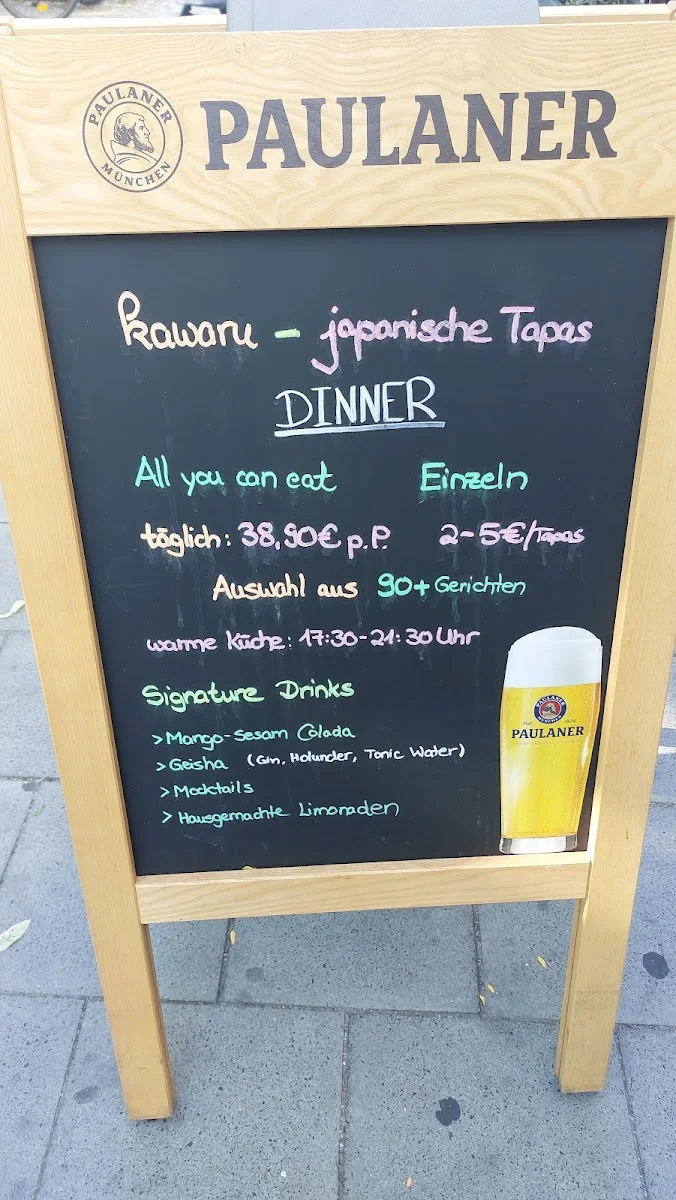 PAULANER
MÜNCHEN
PAULANER
kawaru - japanische Tapas
DINNER
All you can eat Einzeln
täglich: 38,90€ p.P. 2-5€/Tapas
Auswahl aus 90+ Gerichten
warme Küche: 17:30-21:30 Uhr
Signature Drinks
> Mango-Sesam Colada
> Geisha (Gin, Holunder, Tonic Water)
> Mocktails
> Hausgemachte Limonaden
PAULANER